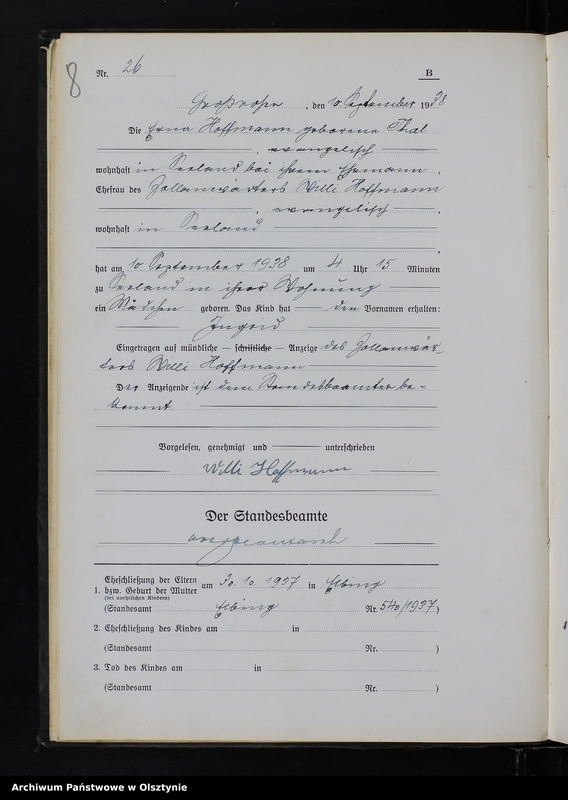 8
Nr. 26 B
Großrosen, den 10. September 1938
Die Erna Hoffmann geborene Thal
, evangelisch
wohnhaft in Seeland bei ihrem Ehemann,
Ehefrau des Zollanwärters Willi Hoffmann
, evangelisch,
wohnhaft in Seeland
,
hat am 10. September 1938 um 4 Uhr 15 Minuten
zu Seeland in ihrer Wohnung
ein Mädchen geboren. Das Kind hat den Vornamen erhalten:
Ingrid
Eingetragen auf mündliche – schriftliche – Anzeige des Zollanwär-
ters Willi Hoffmann
Der Anzeigende ist dem Standesbeamten be-
kannt.
Vorgelesen, genehmigt und unterschrieben
Willi Hoffmann
Der Standesbeamte
Eheschließung der Eltern
1. bzw. Geburt der Mutter am 30.10.1937 in Elbing
(bei unehelichen Kindern)
(Standesamt Elbing Nr. 540/1937)
2. Eheschließung des Kindes am in
(Standesamt Nr. )
3. Tod des Kindes am in
(Standesamt Nr. )
Archiwum Państwowe w Olsztynie